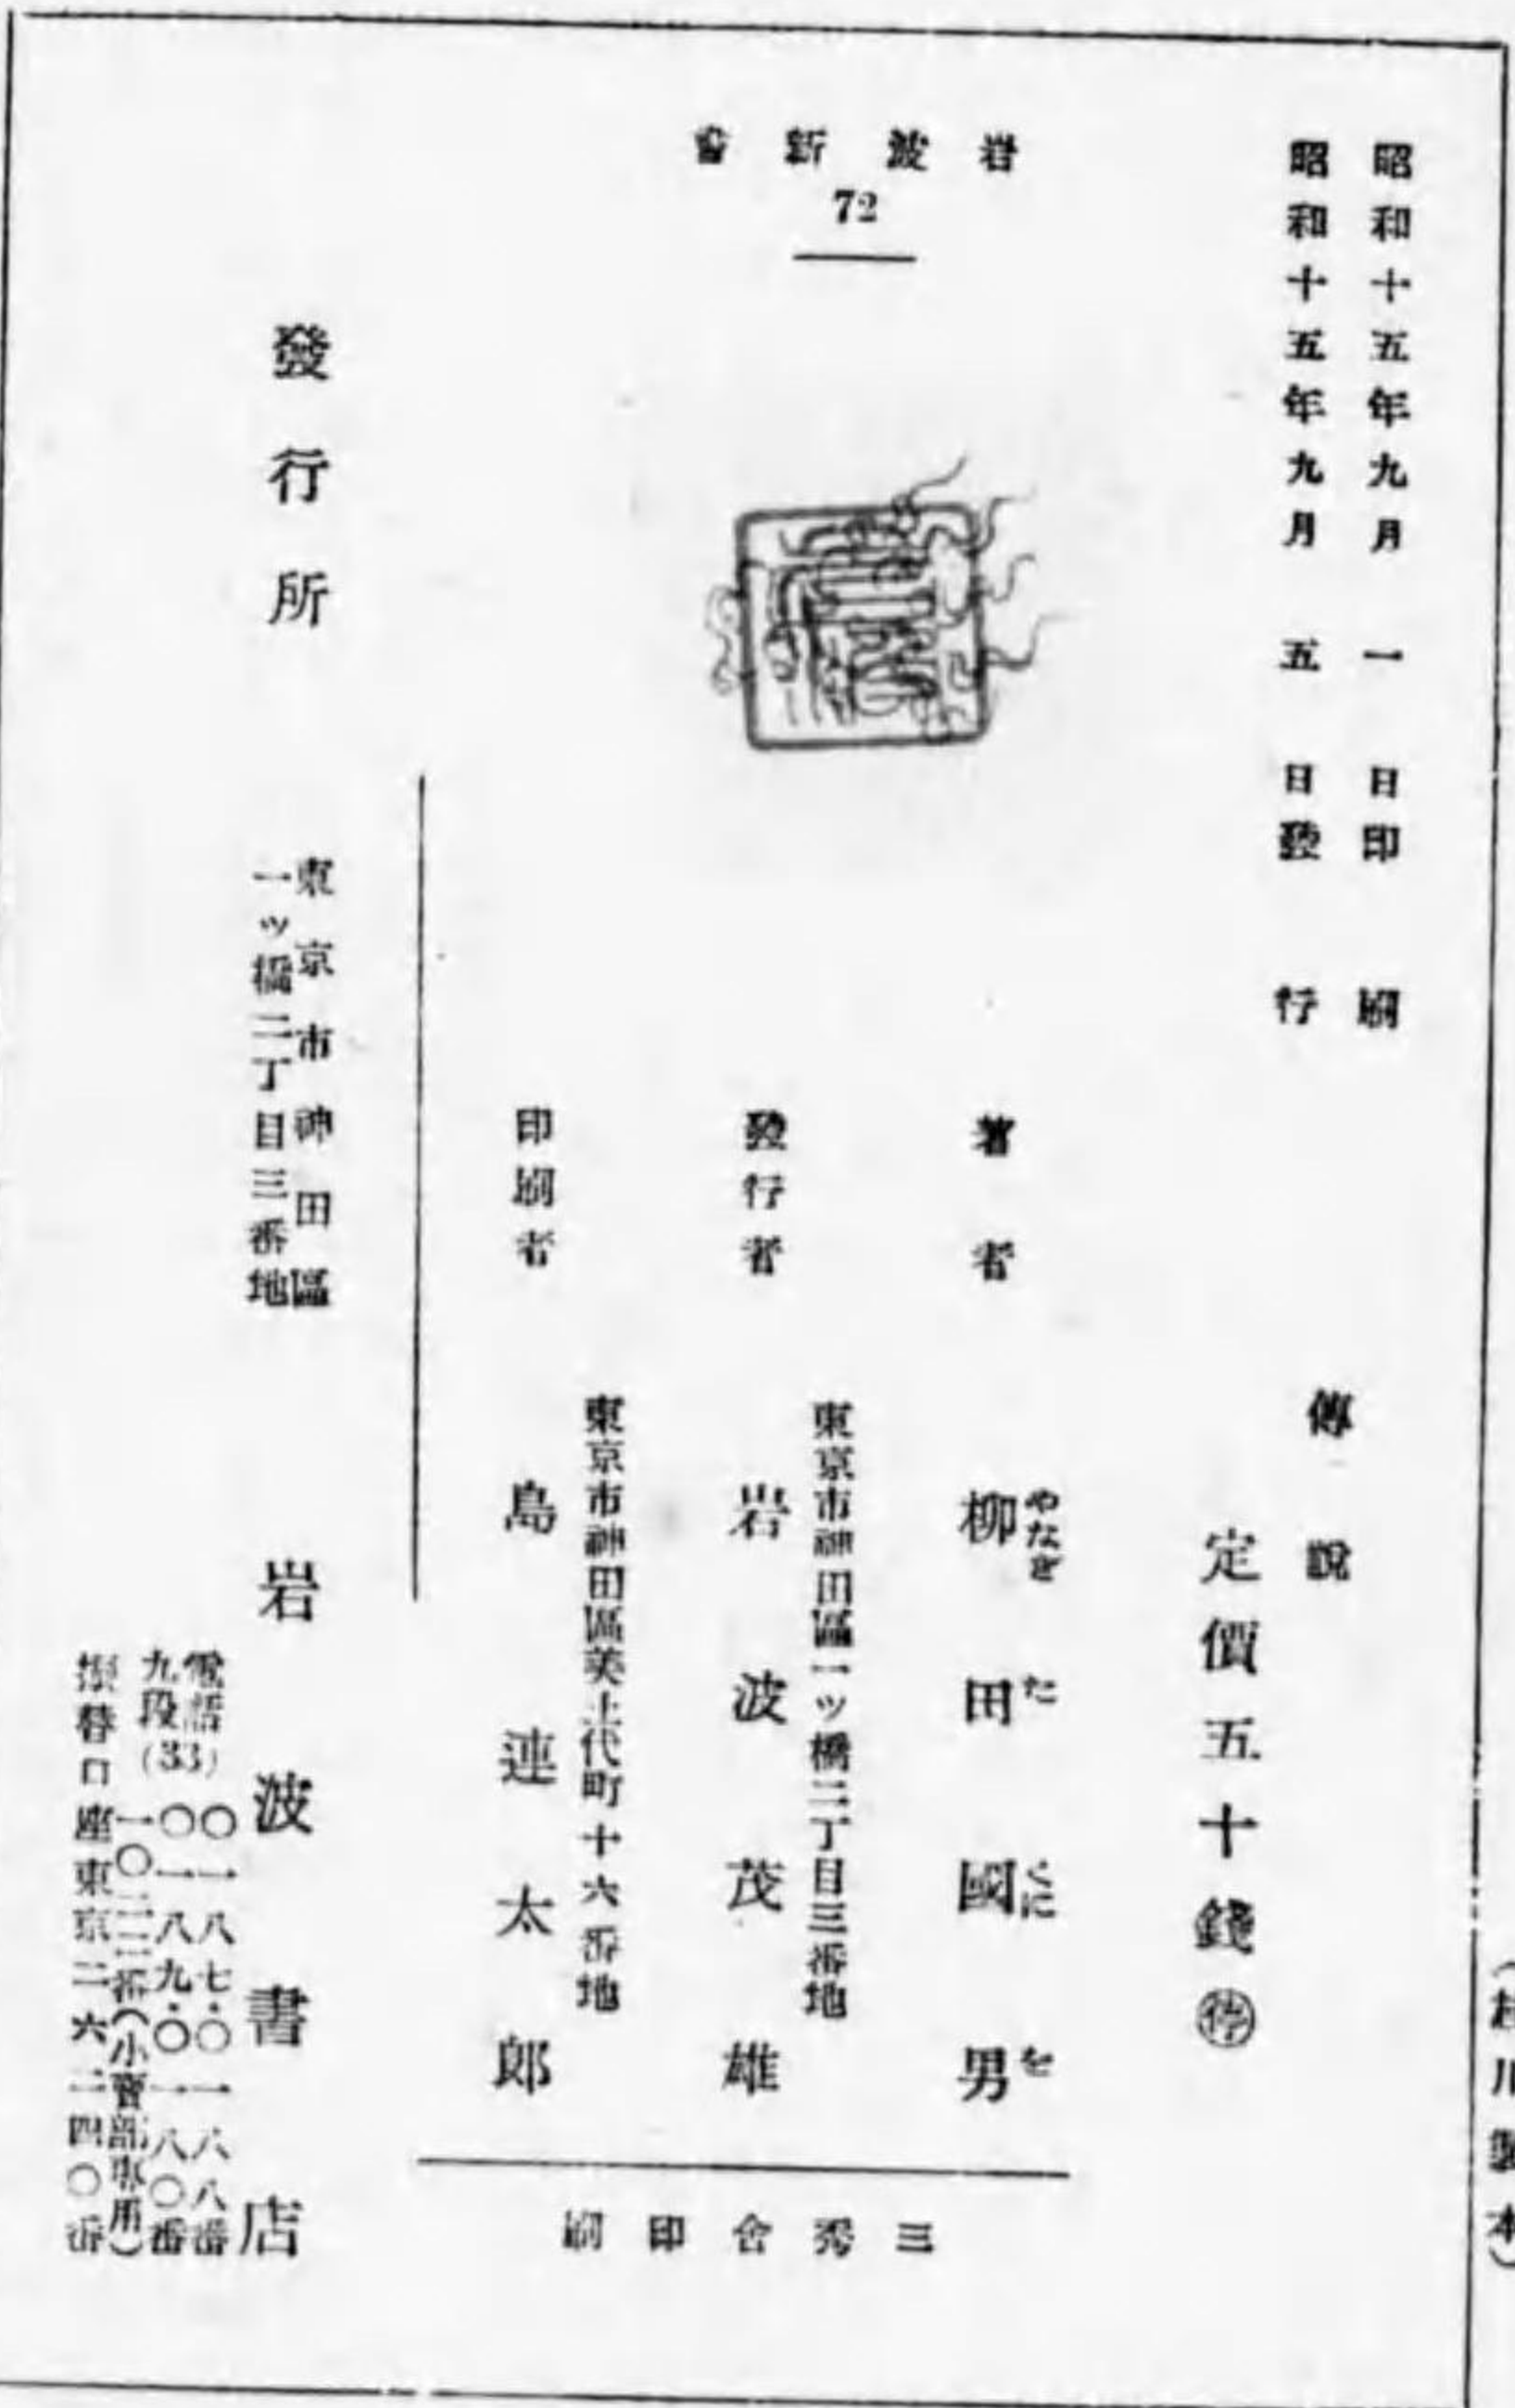 昭和十五年九月一日印刷
昭和十五年九月五日發行
傳說
定價五十錢㊝
岩波新書
72
著者
柳田國男
やなぎたくにを
發行者
東京市神田區一ッ橋二丁目三番地
岩波茂雄
印刷者
東京市神田區美土代町十六番地
島連太郎
三秀舍印刷
發行所
東京市神田區
一ッ橋二丁目三番地
岩波書店
電話
九段(33)
〇一八七・〇一六八番
〇一八九・〇一八〇番
(小賣部專用)
振替口座東京二六二四〇番
川製本)